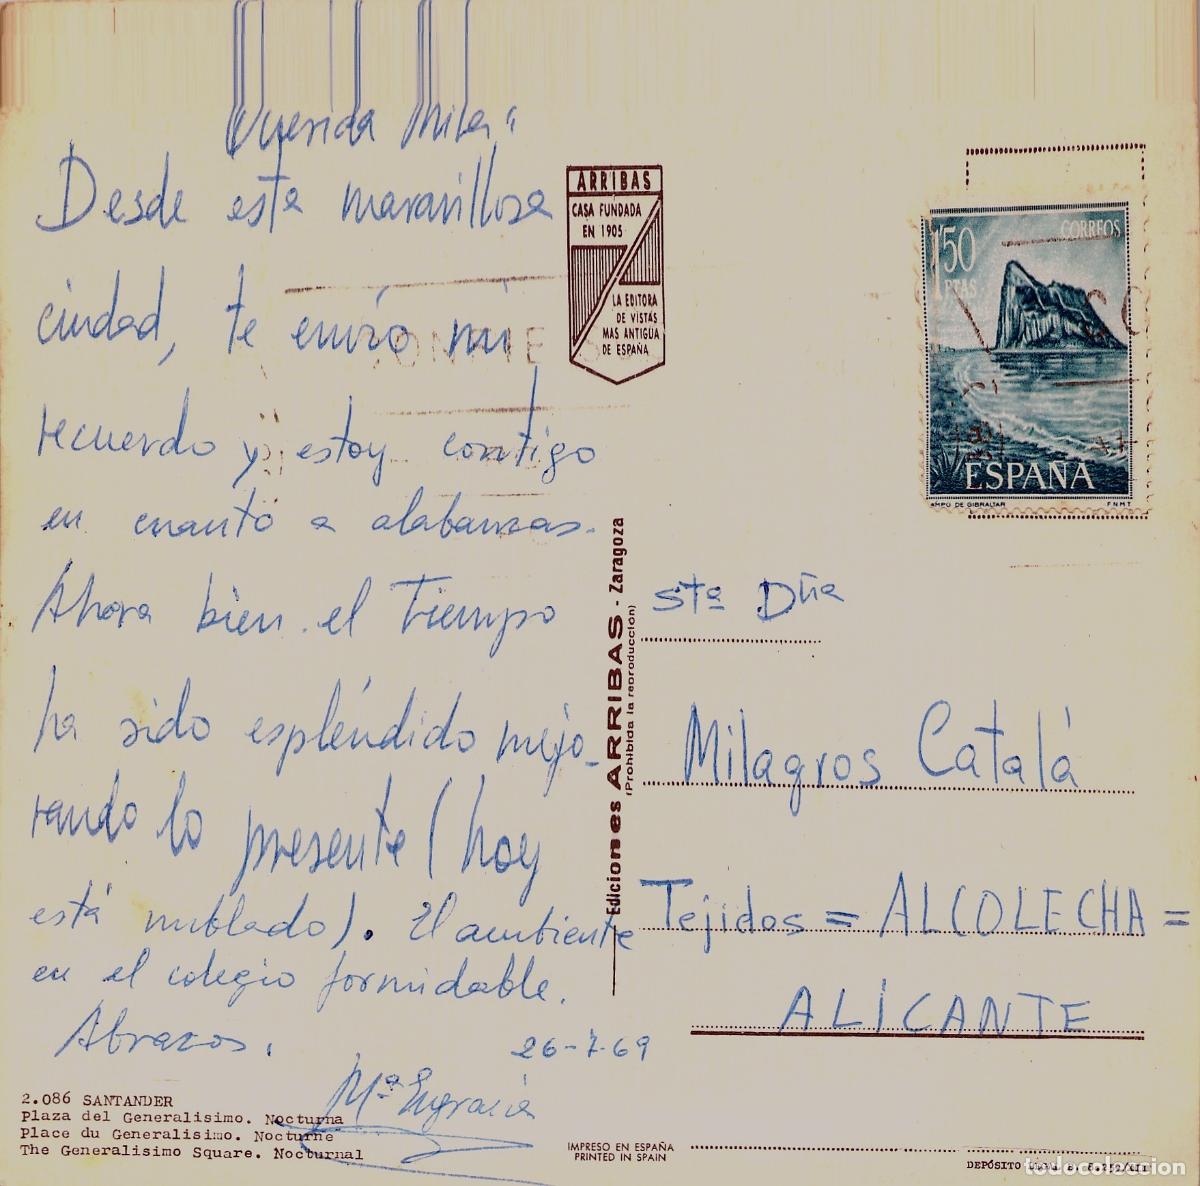 Querida Mila:
Desde esta maravillosa
ciudad, te envío mi
recuerdo y estoy contigo
en cuanto a alabanzas.
Ahora bien el tiempo
ha sido espléndido mejo-
rando lo presente (hoy
está nublado). El ambiente
en el colegio formidable.
Abrazos.
26-7-69
Mª Engracia
2.086 SANTANDER
Plaza del Generalisimo. Nocturna
Place du Generalisimo. Nocturne
The Generalisimo Square. Nocturnal
ARRIBAS
CASA FUNDADA
EN 1905
LA EDITORA
DE VISTAS
MAS ANTIGUA
DE ESPAÑA
Ediciones ARRIBAS - Zaragoza
(Prohibida la reproducción)
1'50
PTAS
CORREOS
ESPAÑA
CAMPO DE GIBRALTAR F.N.M.T.
Sta Dña
Milagros Catalá
Tejidos = ALCOLECHA =
ALICANTE
IMPRESO EN ESPAÑA
PRINTED IN SPAIN
DEPÓSITO
todocoleccion